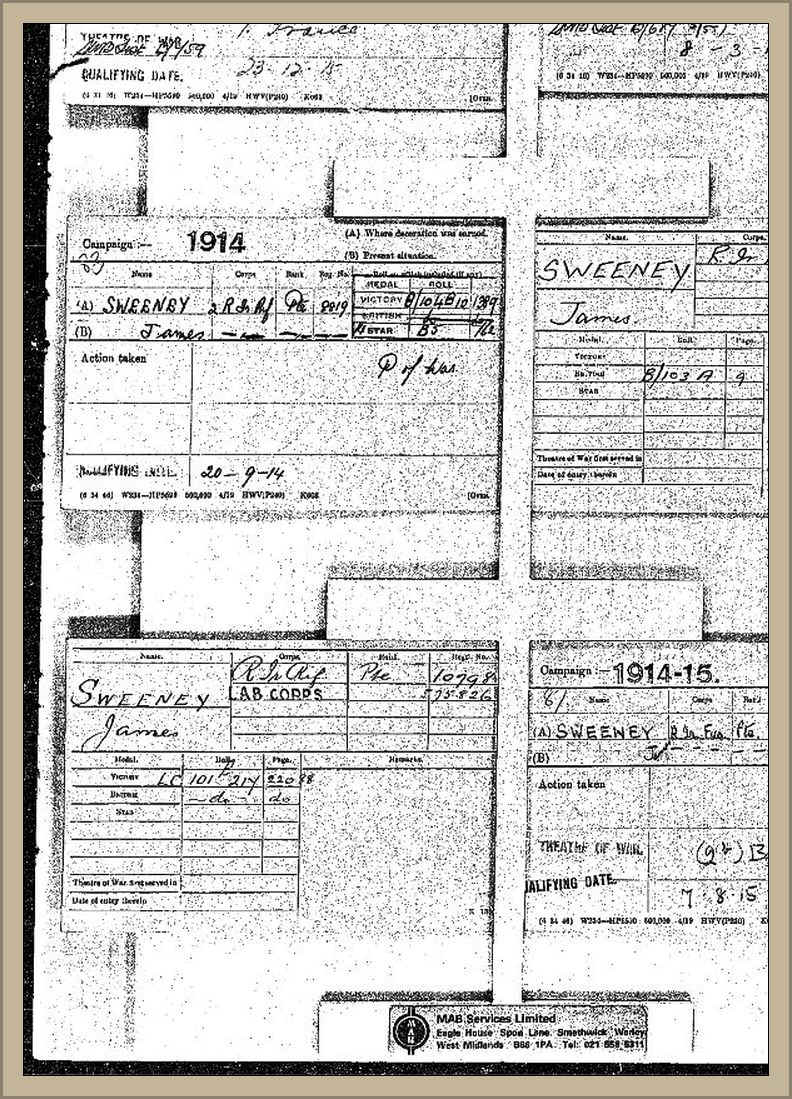 THEATRE OF WAR
1. France
QUALIFYING DATE.
23-12-15
(6 34 46) W234—HP5590 500,000 4/19 HWV(P240) K608
8 - 3 -
(6 34 46) W234—HP5590 500,000 4/19 HWV(P240)
Campaign :— 1914
(A) Where decoration was earned.
(B) Present situation.
Name Corps Rank Reg. No. Roll on which included (if any)
MEDAL ROLL
(A) SWEENEY 2 R Ir Rif Pte 8819 VICTORY B/104B10 1389
BRITISH do do
(B) James — — — — STAR
Action taken
P of War
QUALIFYING DATE. 20-9-14
(6 34 46) W234—HP5590 500,000 4/19 HWV(P240) K608 [Over.
Name. Corps.
SWEENEY R Ir
James.
Medal. Roll. Page.
VICTORY
BRITISH B/103 A 9
STAR
Theatre of War first served in
Date of entry therein
Name. Corps. Rank. Regtl. No.
SWEENEY R Ir Rif Pte
LAB CORPS 575826
James
Medal. Roll. Page. Remarks.
VICTORY LC 101 B 214 22088
BRITISH —do— do
STAR
Theatre of War first served in
Date of entry therein
Campaign :— 1914-15.
Name Corps Rank
(A) SWEENEY R. Ir. Fus. Pte.
(B)
Action taken
THEATRE OF WAR.
QUALIFYING DATE.
7 8.15
(6 34 46) W234—HP5590 500,000 4/19 HWV(P240)
MAB Services Limited
Eagle House Spon Lane. Smethwick Warley
West Midlands B66 1PA. Tel: 021 558 6311